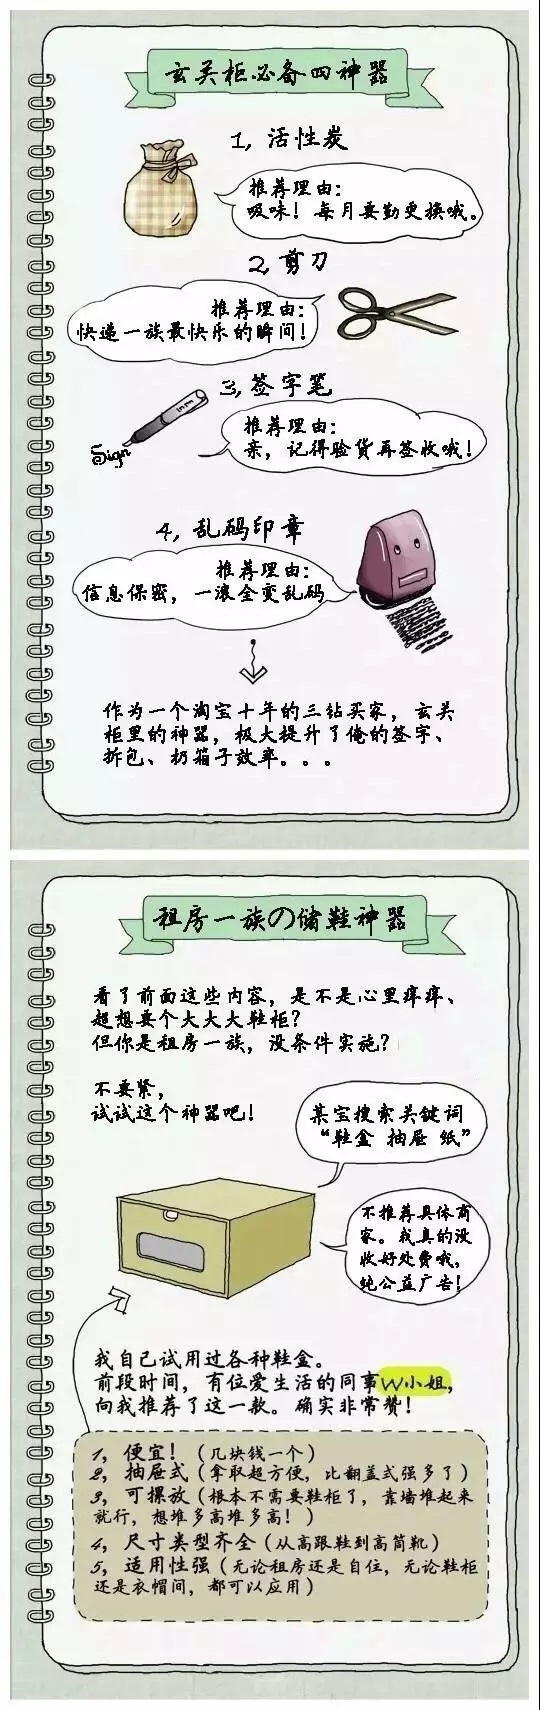 玄关柜必备四神器
1, 活性炭
推荐理由:
吸味! 每月要勤更换哦。
2, 剪刀
推荐理由:
快递一族最快乐的瞬间!
3, 签字笔
推荐理由:
亲, 记得验货再签收哦!
Sign
4, 乱码印章
推荐理由:
信息保密, 一滚全变乱码
作为一个淘宝十年的三钻买家, 玄关
柜里的神器, 极大提升了俺的签字、
拆包、扔箱子效率。。。
租房一族の储鞋神器
看了前面这些内容, 是不是心里痒痒、
超想要个大大大鞋柜?
但你是租房一族, 没条件实施?
不要紧,
试试这个神器吧!
某宝搜索关键词
“鞋盒 抽屉 纸”
不推荐具体商
家。我真的没
收好处费哦,
纯公益广告!
我自己试用过各种鞋盒。
前段时间, 有位爱生活的同事W小姐,
向我推荐了这一款。确实非常赞!
1, 便宜! (几块钱一个)
2, 抽屉式 (拿取超方便, 比翻盖式强多了)
3, 可摞放 (根本不需要鞋柜了, 靠墙堆起来
就行, 想堆多高堆多高! )
4, 尺寸类型齐全 (从高跟鞋到高筒靴)
5, 适用性强 (无论租房还是自住, 无论鞋柜
还是衣帽间, 都可以应用)